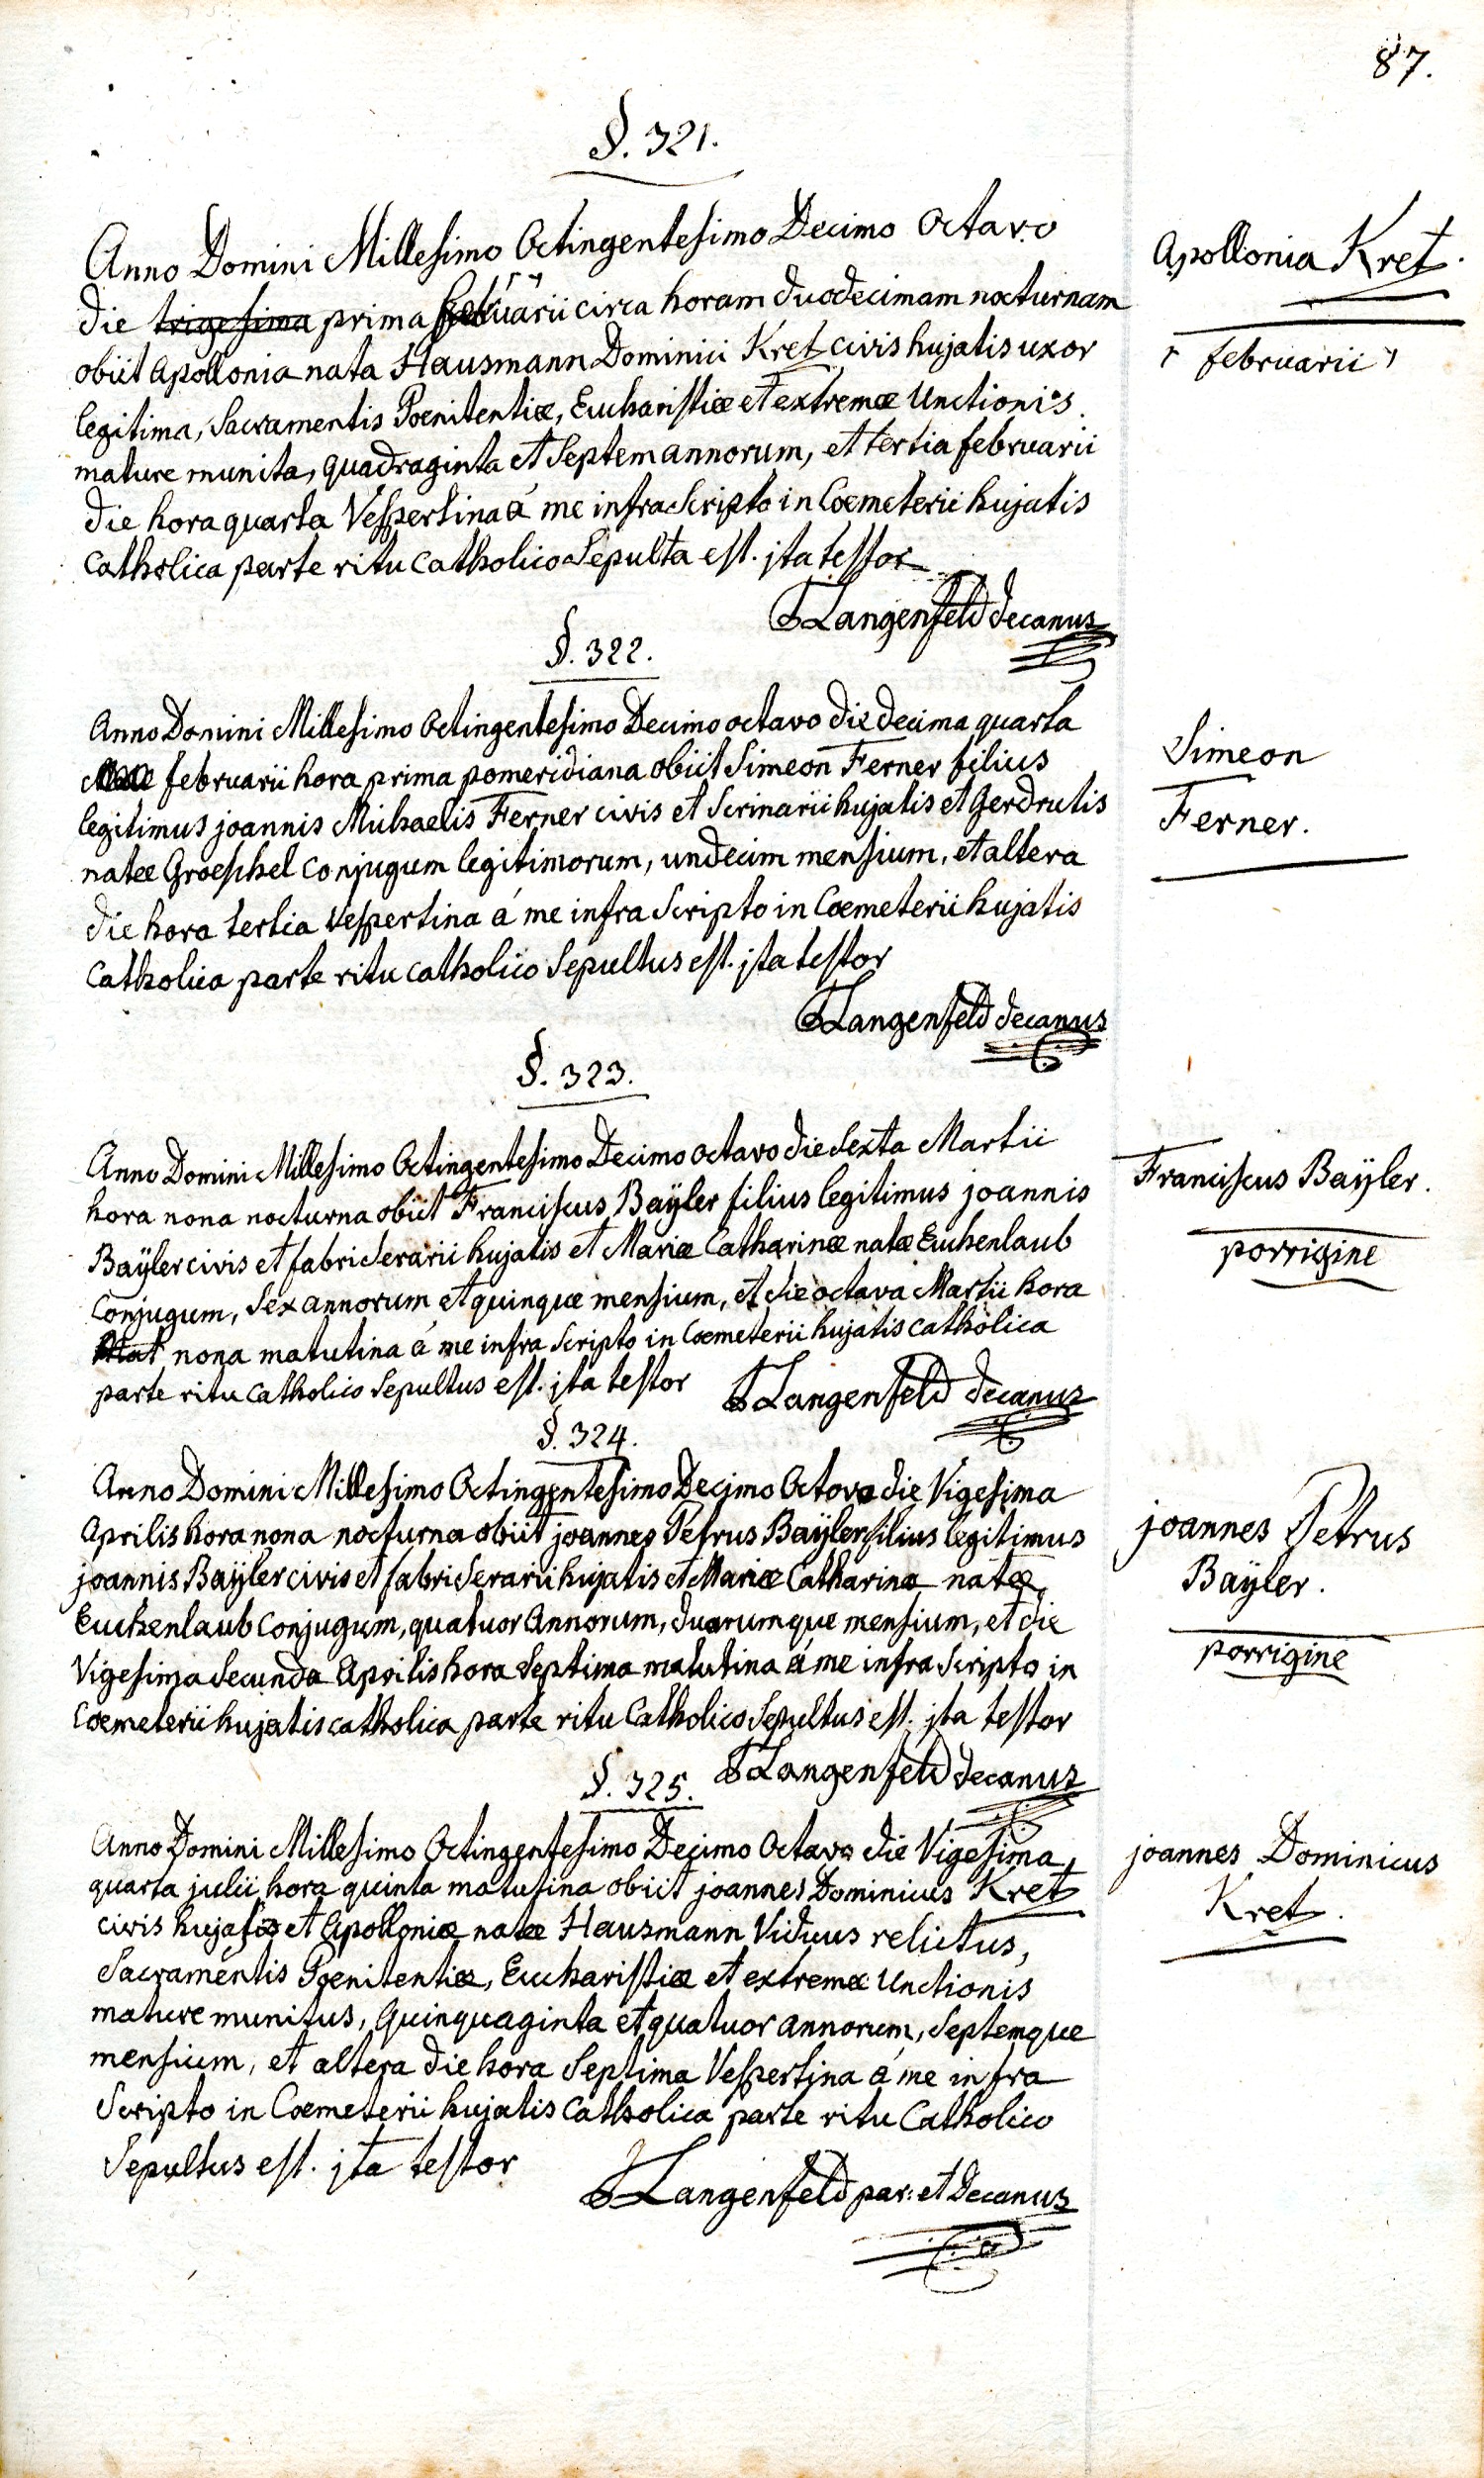 87.
§. 321.
Anno Domini Millesimo Octingentesimo Decimo Octavo
die trigesima prima februarii circa horam duodecimam nocturnam
obiit Apollonia nata Hausmann Dominici Kret civis hujatis uxor
legitima, Sacramentis Poenitentiæ, Eucharistiæ et extremæ Unctionis
mature munita, quadraginta et Septem annorum, et tertia februarii
die hora quarta Vespertina á me infra Scripto in Coemeterii hujatis
Catholica parte ritu Catholico Sepulta est. jta testor
Langenfeld decanus
Apollonia Kret.
februarii
§. 322.
Anno Domini Millesimo Octingentesimo Decimo octavo die decima quarta
februarii hora prima pomeridiana obiit Simeon Ferner filius
legitimus joannis Michaelis Ferner civis et Scrinarii hujatis et Gerdrutis
natæ Groeschel Conjugum legitimorum, undecim mensium, et altera
die hora tertia Vespertina á me infra Scripto in Coemeterii hujatis
Catholica parte ritu catholico Sepultus est. jta testor
Langenfeld decanus
Simeon
Ferner.
§. 323.
Anno Domini Millesimo Octingentesimo Decimo octavo die Sexta Martii
hora nona nocturna obiit Franciscus Baÿler filius legitimus joannis
Baÿler civis et fabri Serarii hujatis et Mariæ Catharinæ natæ Euchenlaub
Conjugum, Sex annorum et quinque mensium, et die octava Martii hora
Mat nona matutina á me infra Scripto in Coemeterii hujatis catholica
parte ritu Catholico Sepultus est. jta testor
Langenfeld decanus
Franciscus Baÿler.
porrigine
§. 324.
Anno Domini Millesimo Octingentesimo Decimo Octavo die Vigesima
Aprilis hora nona nocturna obiit joannes Petrus Baÿler filius legitimus
joannis Baÿler civis et fabri Serarii hujatis et Mariæ Catharinæ natæ
Euchenlaub Conjugum, quatuor Annorum, duorumque mensium, et die
Vigesima Secunda Aprilis hora Septima matutina á me infra Scripto in
Coemeterii hujatis catholica parte ritu Catholico Sepultus est. jta testor
Langenfeld decanus
joannes Petrus
Baÿler.
porrigine
§. 325.
Anno Domini Millesimo Octingentesimo Decimo Octavo die Vigesima
quarta julii hora quinta matutina obiit joannes Dominicus Kret
civis hujatis et Apolloniæ natæ Hausmann Viduus relictus,
Sacramentis Poenitentiæ, Eucharistiæ et extremæ Unctionis
mature munitus, Quinquaginta et quatuor annorum, Septemque
mensium, et altera die hora Septima Vespertina á me infra
Scripto in Coemeterii hujatis Catholica parte ritu Catholico
Sepultus est. jta testor
Langenfeld par: et Decanus
joannes Dominicus
Kret.